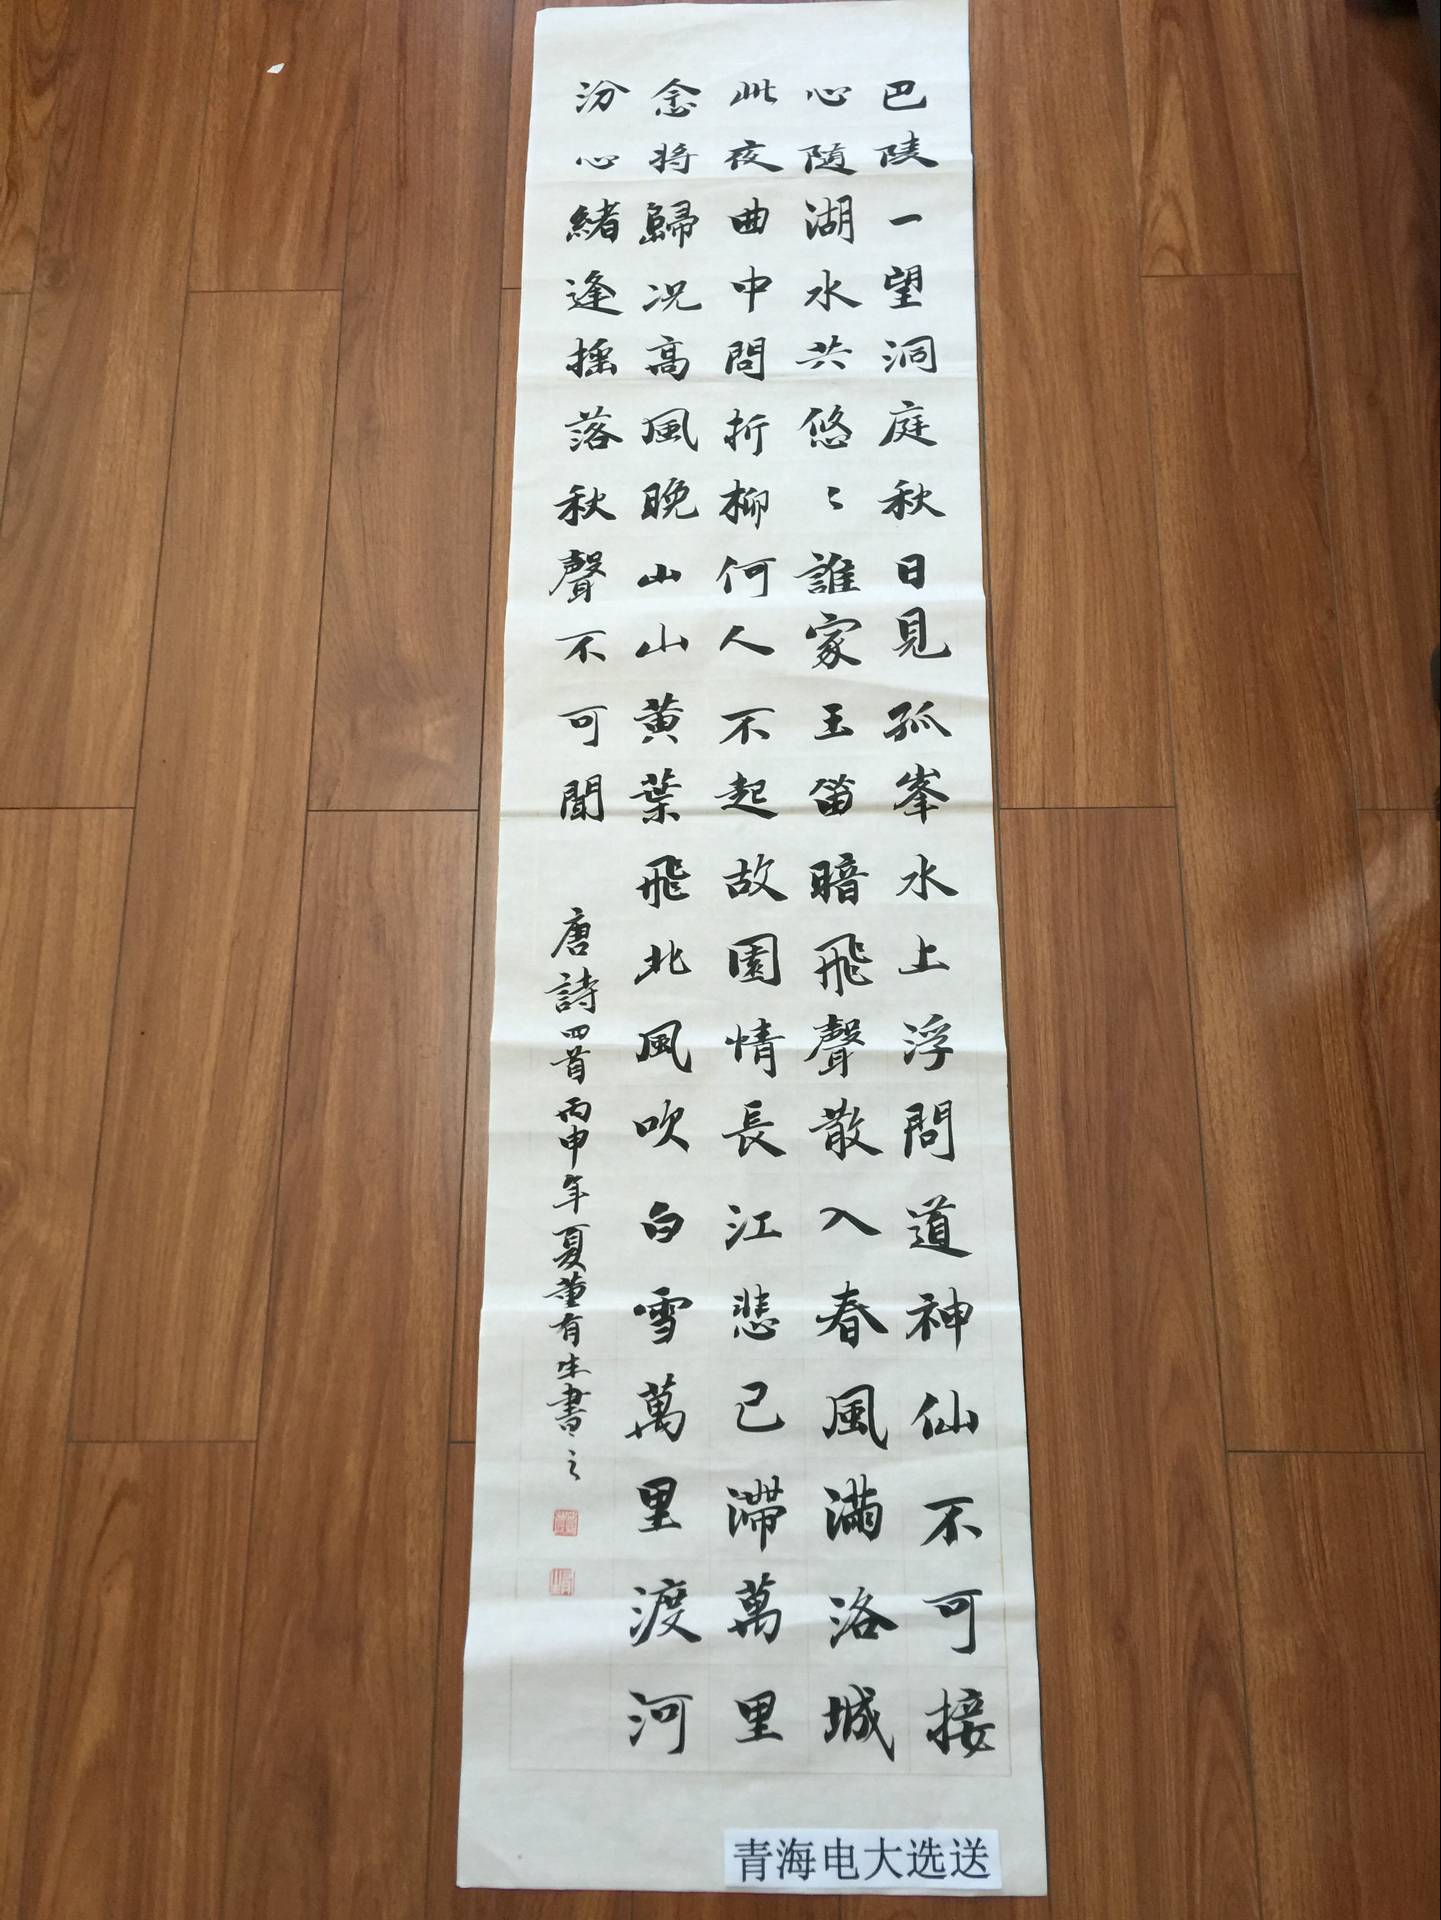 巴陵一望洞庭秋日見孤峯水上浮問道神仙不可接
心隨湖水共悠〻誰家玉笛暗飛聲散入春風滿洛城
此夜曲中問折柳何人不起故園情長江悲已滯萬里
念將歸况高風晚山山黄葉飛北風吹白雪萬里渡河
汾心緒逢摇落秋聲不可聞
唐詩四首丙申年夏董有生書之
青海电大选送